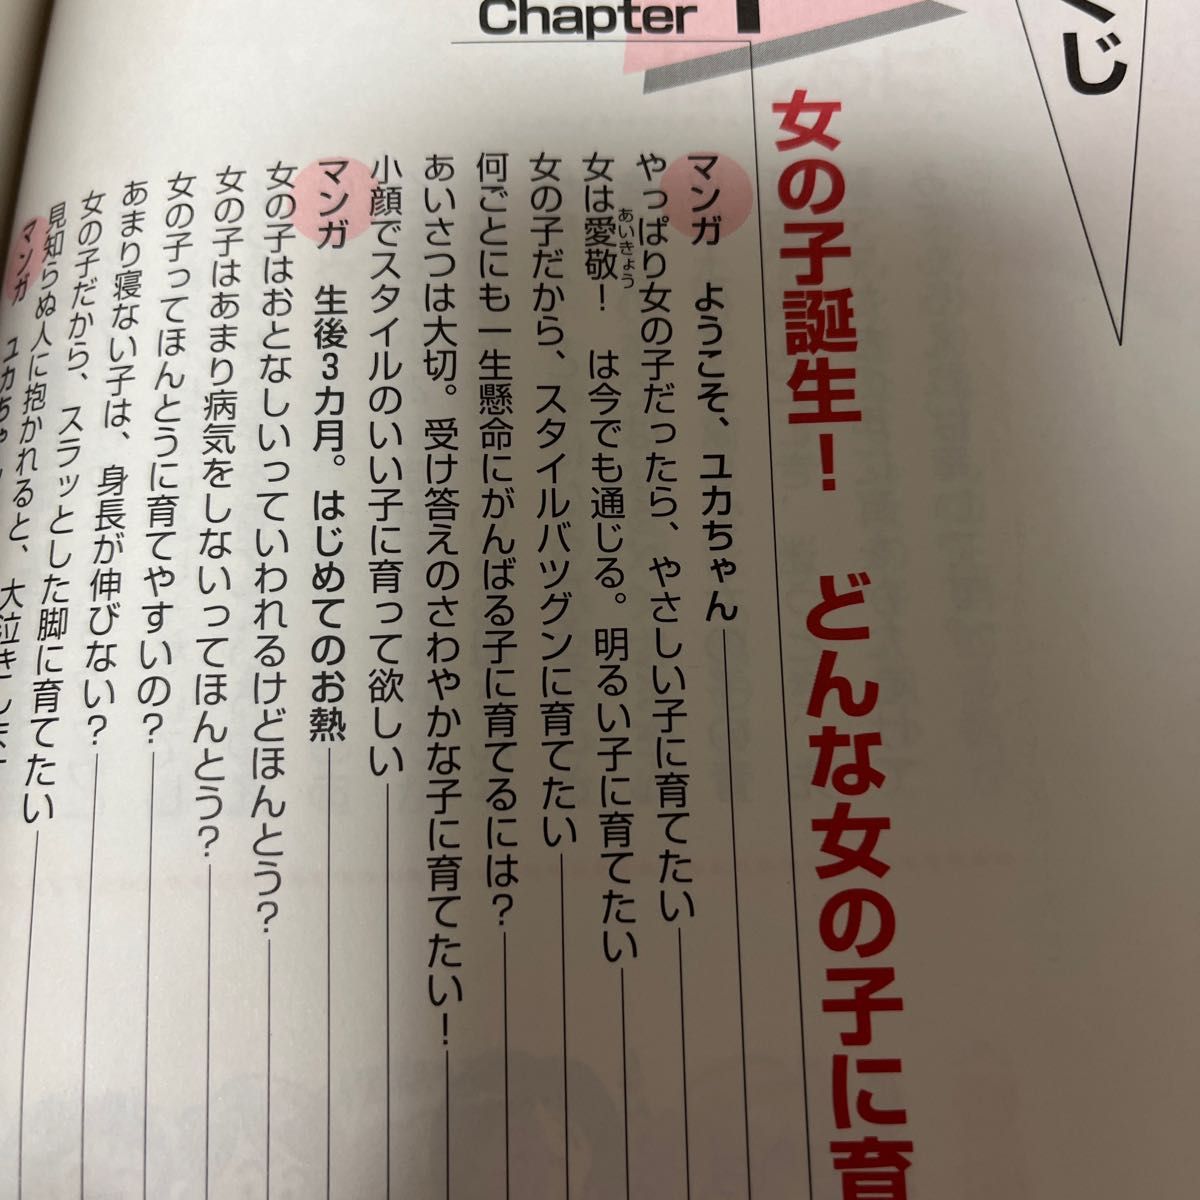 くじ
Chapter 1
女の子誕生! どんな女の子に育
マンガ ようこそ、ユカちゃん
やっぱり女の子だったら、やさしい子に育てたい
女は愛敬! は今でも通じる。明るい子に育てたい
あいきょう
女の子だから、スタイルバツグンに育てたい
何ごとにも一生懸命にがんばる子に育てるには?
あいさつは大切。受け答えのさわやかな子に育てたい!
小顔でスタイルのいい子に育って欲しい
マンガ 生後3カ月。はじめてのお熱
女の子はおとなしいっていわれるけどほんとう?
女の子はあまり病気をしないってほんとう?
女の子ってほんとうに育てやすいの?
あまり寝ない子は、身長が伸びない?
女の子だから、スラッとした脚に育てたい
見知らぬ人に抱かれると、大泣きします
マンガ ユカちゃ